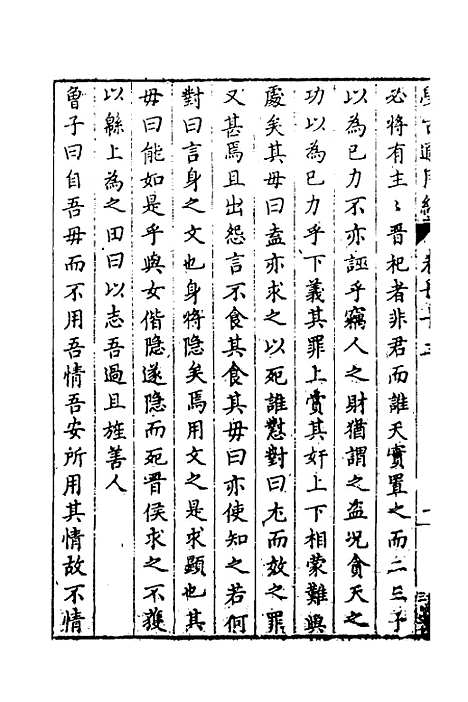 學古適用編
卷
必將有主主晉祀者非君而誰天實置之而二三子
以為已力不亦誣乎竊人之財猶謂之盜况貪天之
功以為已力乎下義其罪上賞其奸上下相蒙難與
處矣其毋曰盍亦求之以死誰懟對曰尤而效之罪
又甚焉且出怨言不食其食其毋曰亦使知之若何
對曰言身之文也身將隱矣焉用文之是求顯也其
毋曰能如是乎與女偕隱遂隱而死晉侯求之不獲
以緜上為之田曰以志吾過且旌善人
曾子曰自吾毋而不用吾情吾安所用其情故不情